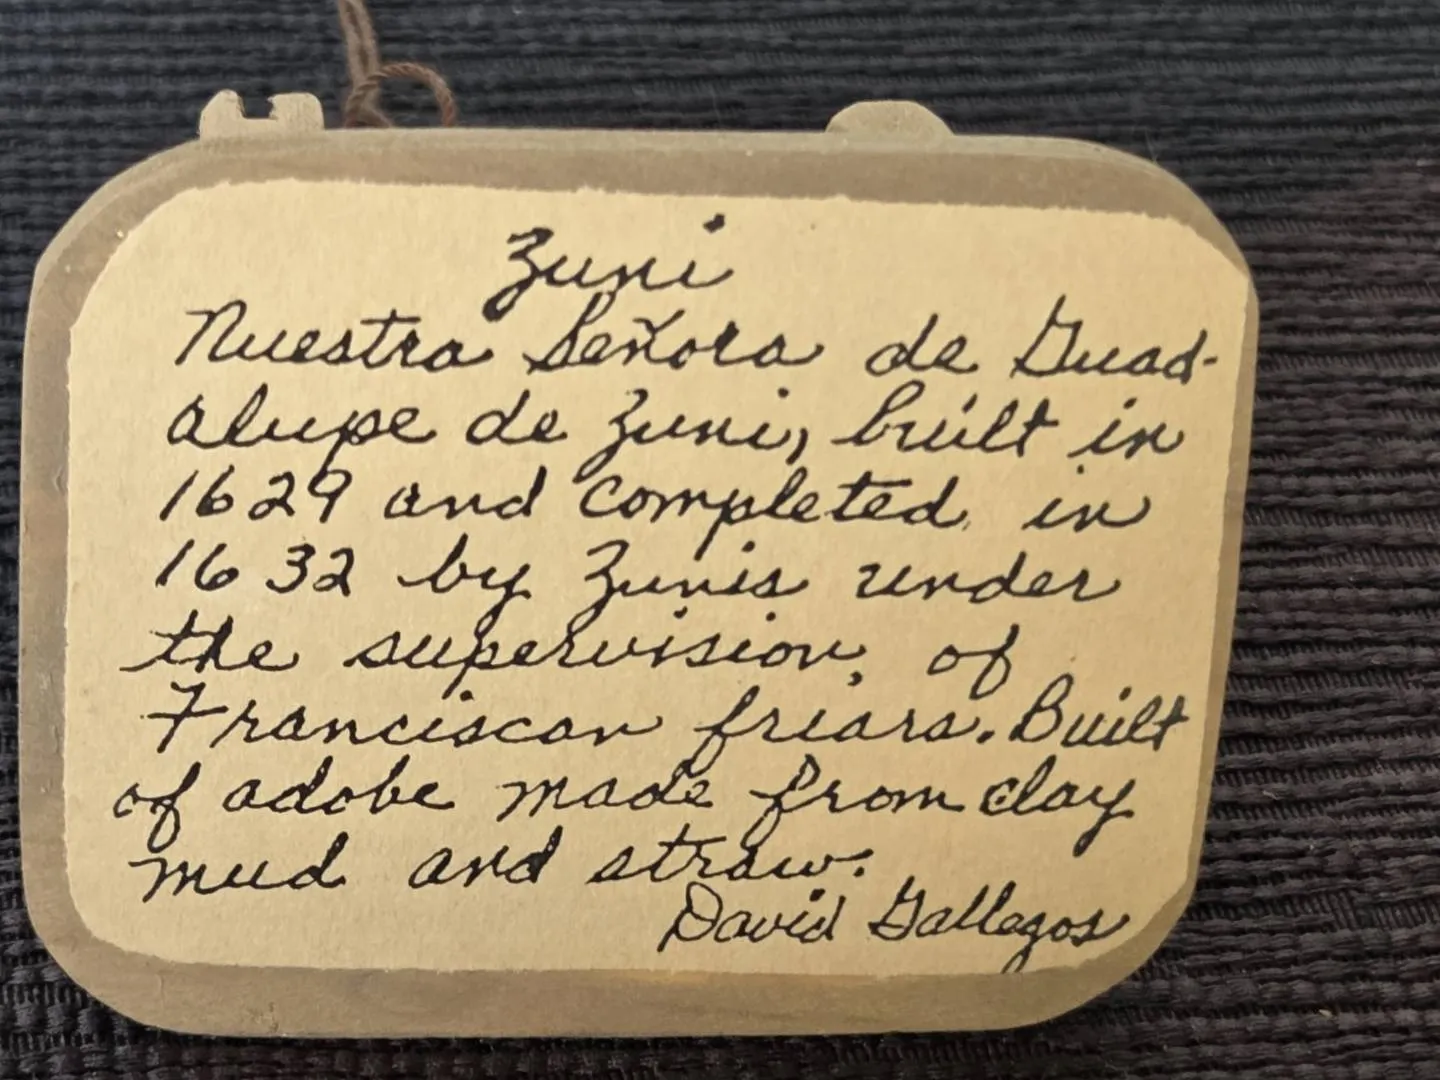 Zuni
Nuestra Señora de Guad-
alupe de Zuni, built in
1629 and completed in
1632 by Zunis under
the supervision of
Franciscan friars. Built
of adobe made from clay
mud and straw.
David Gallegos